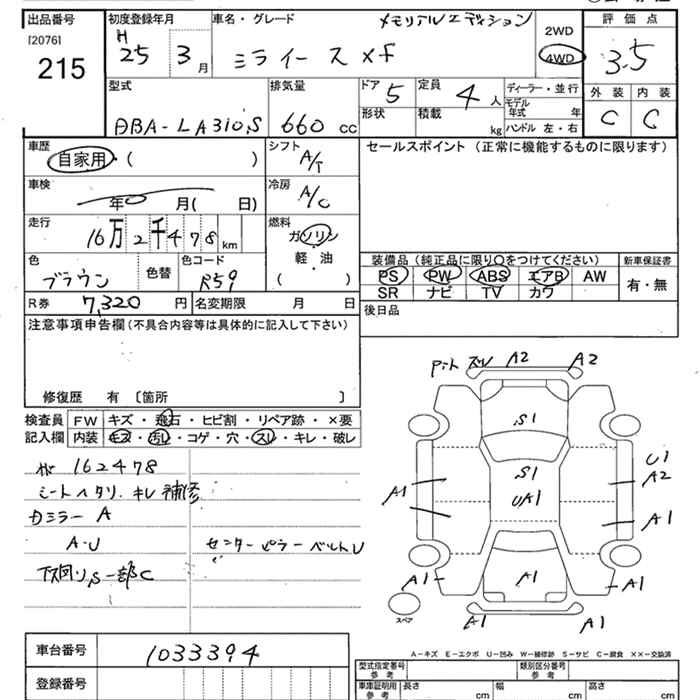 出品番号 初度登録年月 車名・グレード メモリアルエディション 2WD 評価点
[2076] H 4WD
215 25 3月 ミライース xf 3.5
型式 排気量 ドア 5 定員 4人 ディーラー・並行 外装 内装
モデル年式 年
形状 積載 kg ハンドル 左・右 C C
DBA-LA310S 660cc
車歴 シフト セールスポイント (正常に機能するものに限ります)
自家用・( ) A/T
車検 冷房
年 月( 日) A/C
走行 燃料
16万2千478km ガソリン
軽・油
( )
色 色替 色コード 装備品(純正品に限り○をつけてください) 新車保証書
ブラウン R59 PS PW ABS エアB AW 有・無
SR ナビ TV カワ
R券 7,320円 名変期限 月 日 後日品
注意事項申告欄(不具合内容等は具体的に記入して下さい)
修復歴 有 [箇所 ]
検査員 FW キズ・飛石・ヒビ割・リペア跡・×要
記入欄 内装 キズ・汚レ・コゲ・穴・スレ・キレ・破レ
162478
シートヘタリ.キレ補修
カミラー A
A-U センターピラーベルトU
下回りS一部C
ズレ A2 A2
S1
S1
UA1
U1
A2
A1
A1
A1
A1
A1
A1 A1
スペア
A-キズ E-エクボ U-凹み W-補修跡 S-サビ C-腐食 XX-交換済
車台番号 1033394
登録番号
型式指定番号 参考 類別区分番号 参考
車庫証明用 参考 長さ cm 幅 cm 高さ cm